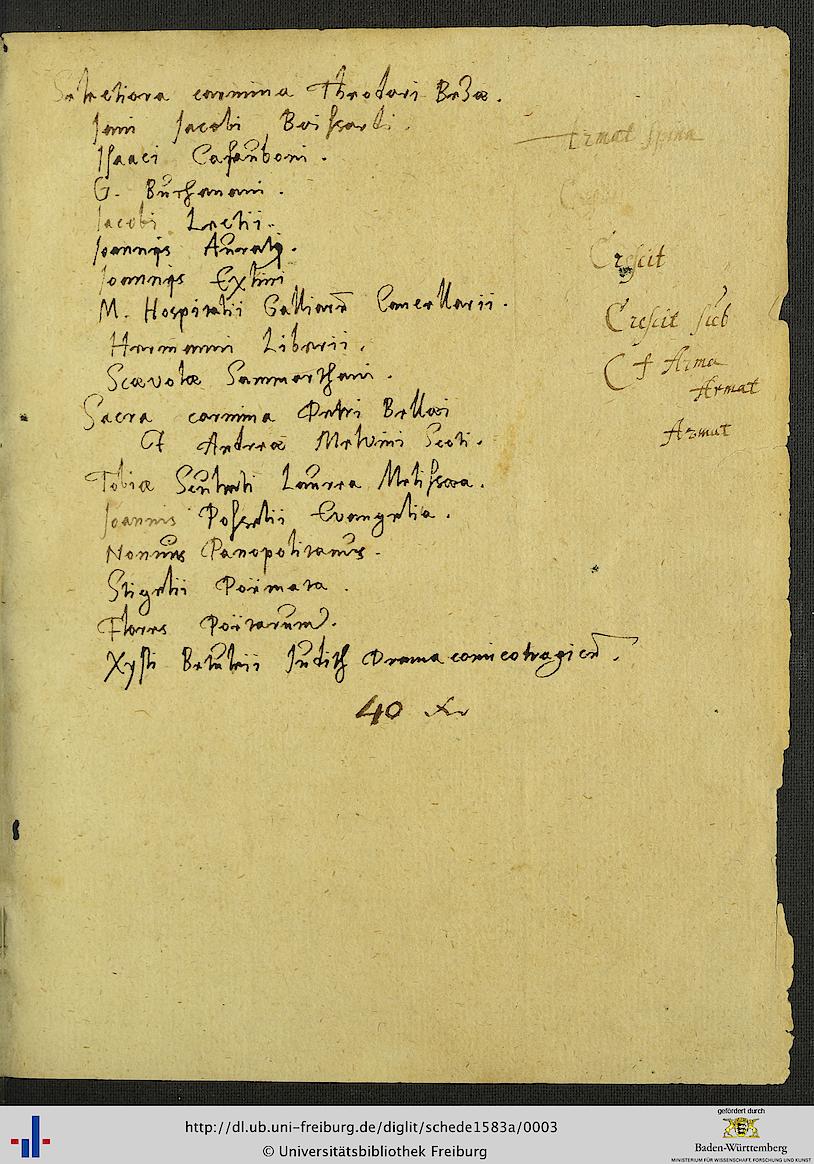 Selectiora carmina Theodori Bezæ.
Jani Jacobi Boissardi.
Isaaci Casauboni.
G. Buchanani.
Jacobi Lectii.
Joannis Aurati.
Joannis
M. Hospitalii Galliarū Cancellarii.
Hermanni
Scævolæ Sammarthani.
Sacra carmina Petri Belloii
Et Andreæ Melvini Scoti.
Tobiæ Sculteti Laurea Melissæa.
Joannis Posselii Evangelia.
Nonnus Panopolitanus.
Stigelii Poëmata.
Flores Poëtarum.
Xysti Betuleii Judith Drama comicotragicū.
40
Armat spina
Crescit
Crescit sub
Et Arma
Armat
Armat
http://dl.ub.uni-freiburg.de/diglit/schede1583a/0003
© Universitätsbibliothek Freiburg
gefördert durch
Baden-Württemberg
MINISTERIUM FÜR WISSENSCHAFT, FORSCHUNG UND KUNST